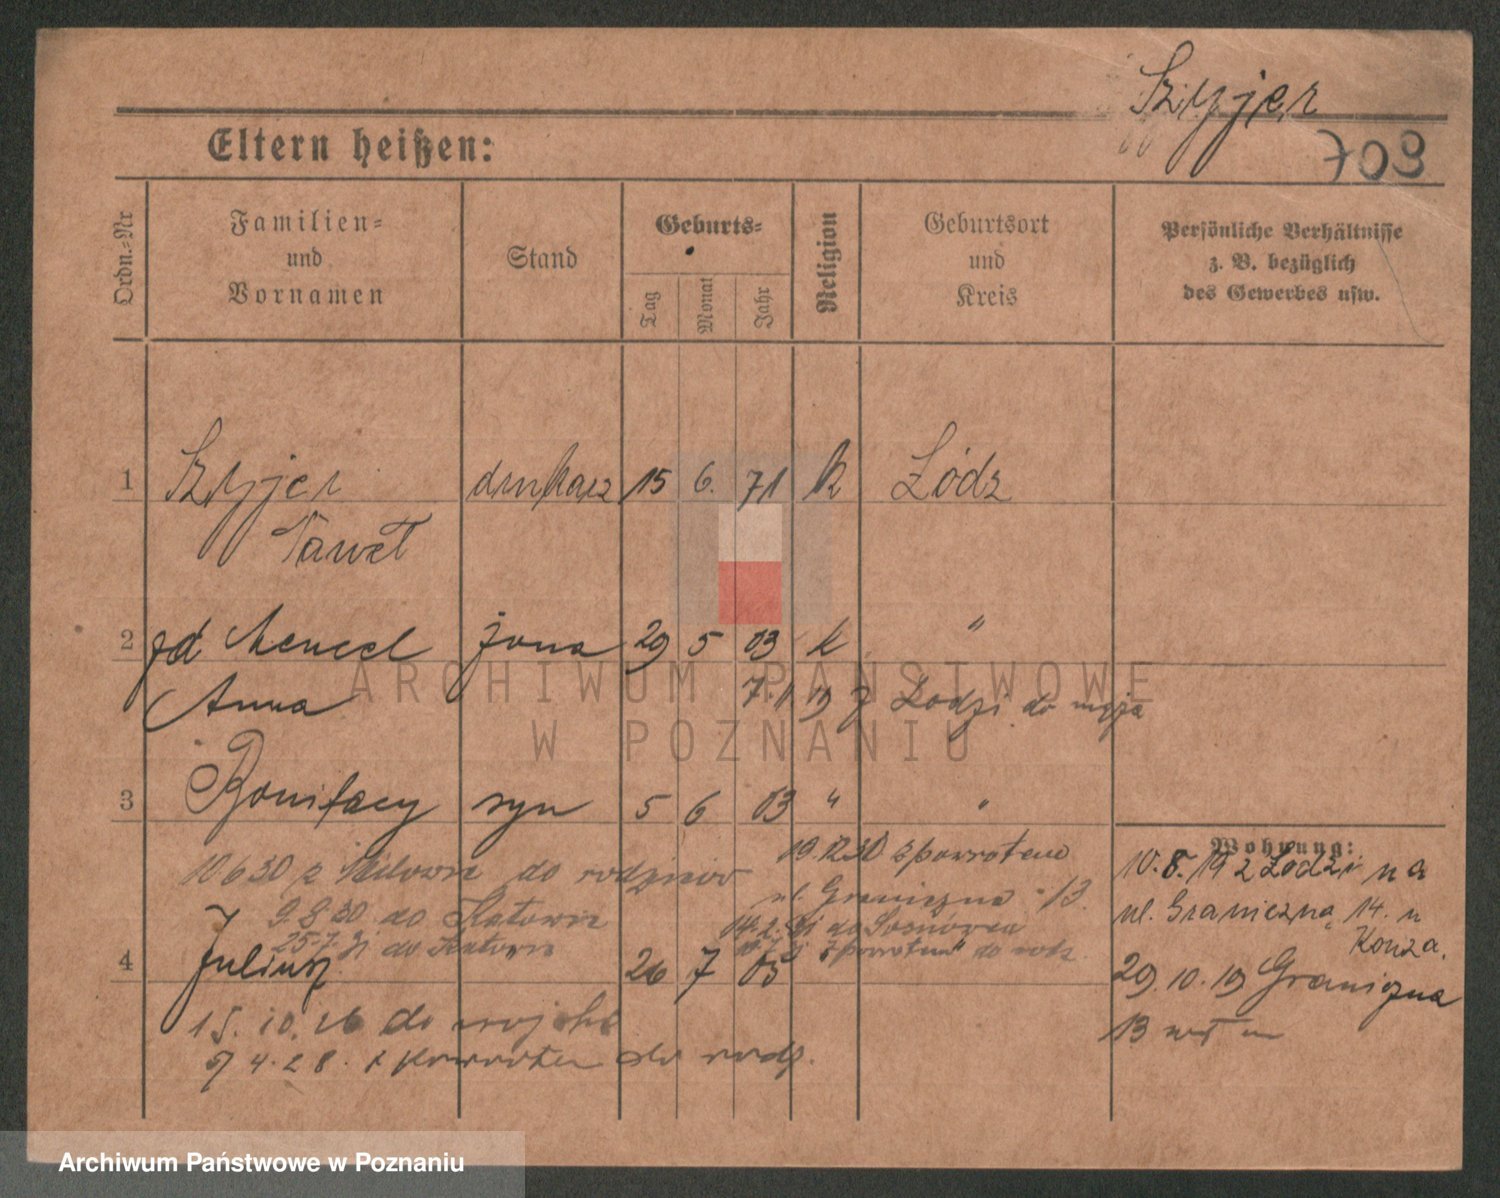 Szyjer
Eltern heißen:
709
Ordn.=Nr
Familien=
und
Vornamen
Stand
Geburts=
Tag
Monat
Jahr
Religion
Geburtsort
und
Kreis
Persönliche Verhältnisse
z. B. bezüglich
des Gewerbes usw.
1 Szyjer drukarz 15 6. 71 k Łódz
Paweł
2 Mencel żona 29 5 03 k "
Anna 7. 11 19 z Łodzi do męża
3 Bonifacy syn 5 6 03 " "
Wohnung:
10 6 30 z do rodziców
19.12.30 z powrotem
ul. Graniczna 13.
10.8.19 z Łodzi na
ul. Graniczna 14. u
Konza.
9.8.30 do Katowic
14.2.31 do Sosnowca
25.7.31 do Katowic
z powrotem do rodz.
4 Juliusz 26 7 05
29.10.19 Graniczna
13
15.10.26 do wojska
4.28. z powrotem do rodz.
ARCHIWUM PAŃSTWOWE
W POZNANIU
Archiwum Państwowe w Poznaniu